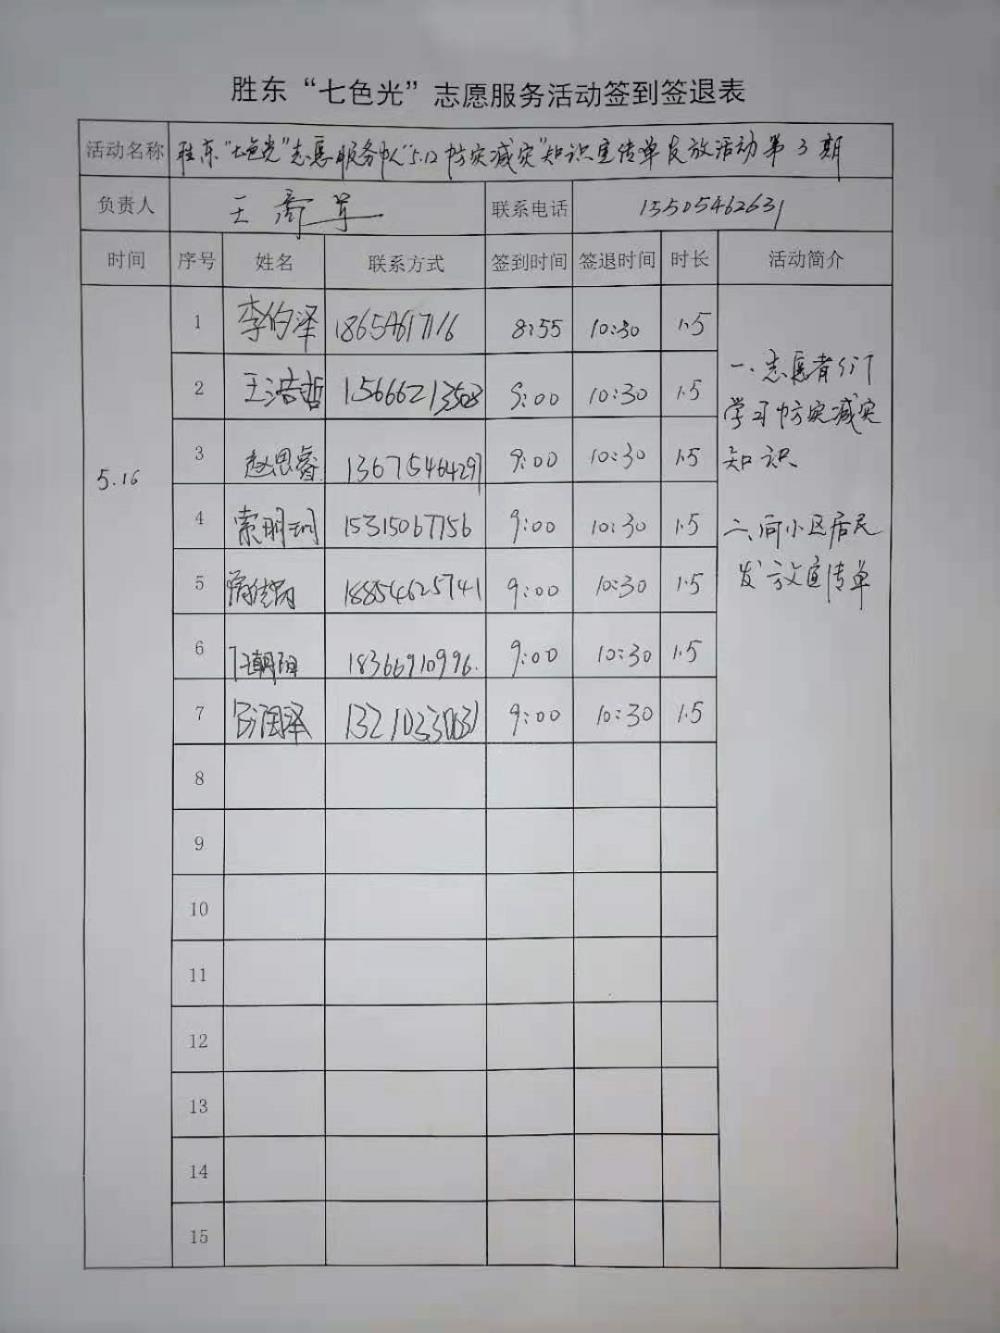 胜东“七色光”志愿服务活动签到签退表
活动名称 胜东“七色光”志愿服务队“5.12防灾减灾”知识宣传单发放活动第3期
负责人 王 联系电话 15505462631
时间 序号 姓名 联系方式 签到时间 签退时间 时长 活动简介
5.16
1 李的泽 18654617116 8:55 10:30 1.5
2 王浩哲 15666213508 9:00 10:30 1.5
3 赵思睿 13675464297 9:00 10:30 1.5
4 索明珂 15315067756 9:00 10:30 1.5
5 18854625741 9:00 10:30 1.5
6 王朝阳 18366910996. 9:00 10:30 1.5
7 润泽 9:00 10:30 1.5
8
9
10
11
12
13
14
15
一、志愿者们
学习防灾减灾
知识
二、向小区居民
发放宣传单